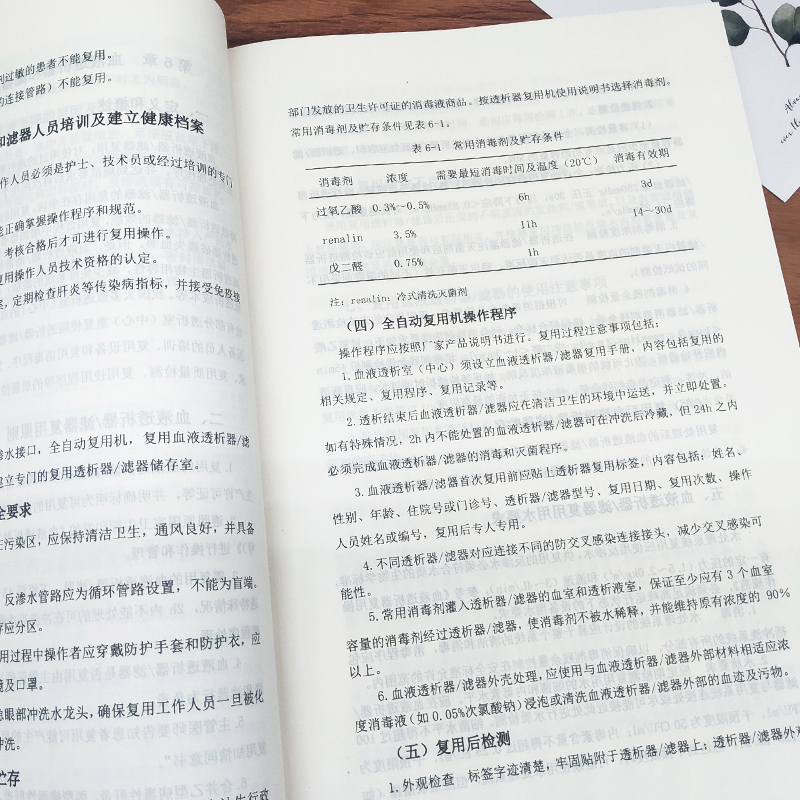 剂过敏的患者不能复用。
的连接管路）不能复用。
和滤器人员培训及建立健康档案
作人员必须是护士、技术员或经过培训的专门
能正确掌握操作程序和规范。
，考核合格后才可进行复用操作。
复用操作人员技术资格的认定。
案，定期检查肝炎等传染病指标，并接受免疫接
渗水接口，全自动复用机，复用血液透析器/滤
建立专门的复用透析器/滤器储存室。
全要求
在污染区，应保持清洁卫生，通风良好，并具备
反渗水管路应为循环管路设置，不能为盲端。
存应分区。
用过程中操作者应穿戴防护手套和防护衣，应
镜及口罩。
急眼部冲洗水龙头，确保复用工作人员一旦被化
冲洗。
贮存
部门发放的卫生许可证的消毒液商品。按透析器复用机使用说明书选择消毒剂。
常用消毒剂及贮存条件见表 6-1。
表 6-1 常用消毒剂及贮存条件
消毒剂 浓度 需要最短消毒时间及温度（20℃） 消毒有效期
过氧乙酸 0.3%~0.5% 6h 3d
renalin 3.5% 11h 14~30d
戊二醛 0.75% 1h
注：renalin：冷式清洗灭菌剂
（四）全自动复用机操作程序
操作程序应按照厂家产品说明书进行。复用过程注意事项包括：
1. 血液透析室（中心）须设立血液透析器/滤器复用手册，内容包括复用的
相关规定、复用程序、复用记录等。
2. 透析结束后血液透析器/滤器应在清洁卫生的环境中运送，并立即处置。
如有特殊情况，2h 内不能处置的血液透析器/滤器可在冲洗后冷藏，但 24h 之内
必须完成血液透析器/滤器的消毒和灭菌程序。
3. 血液透析器/滤器首次复用前应贴上透析器复用标签，内容包括：姓名、
性别、年龄、住院号或门诊号、透析器/滤器型号、复用日期、复用次数、操作
人员姓名或编号，复用后专人专用。
4. 不同透析器/滤器对应连接不同的防交叉感染连接接头，减少交叉感染可
能性。
5. 常用消毒剂灌入透析器/滤器的血室和透析液室，保证至少应有 3 个血室
容量的消毒剂经过透析器/滤器，使消毒剂不被水稀释，并能维持原有浓度的 90%
以上。
6. 血液透析器/滤器外壳处理，应使用与血液透析器/滤器外部材料相适应浓
度消毒液（如 0.05%次氯酸钠）浸泡或清洗血液透析器/滤器外部的血迹及污物。
（五）复用后检测
1. 外观检查 标签字迹清楚，牢固贴附于透析器/滤器上；透析器/滤器外观